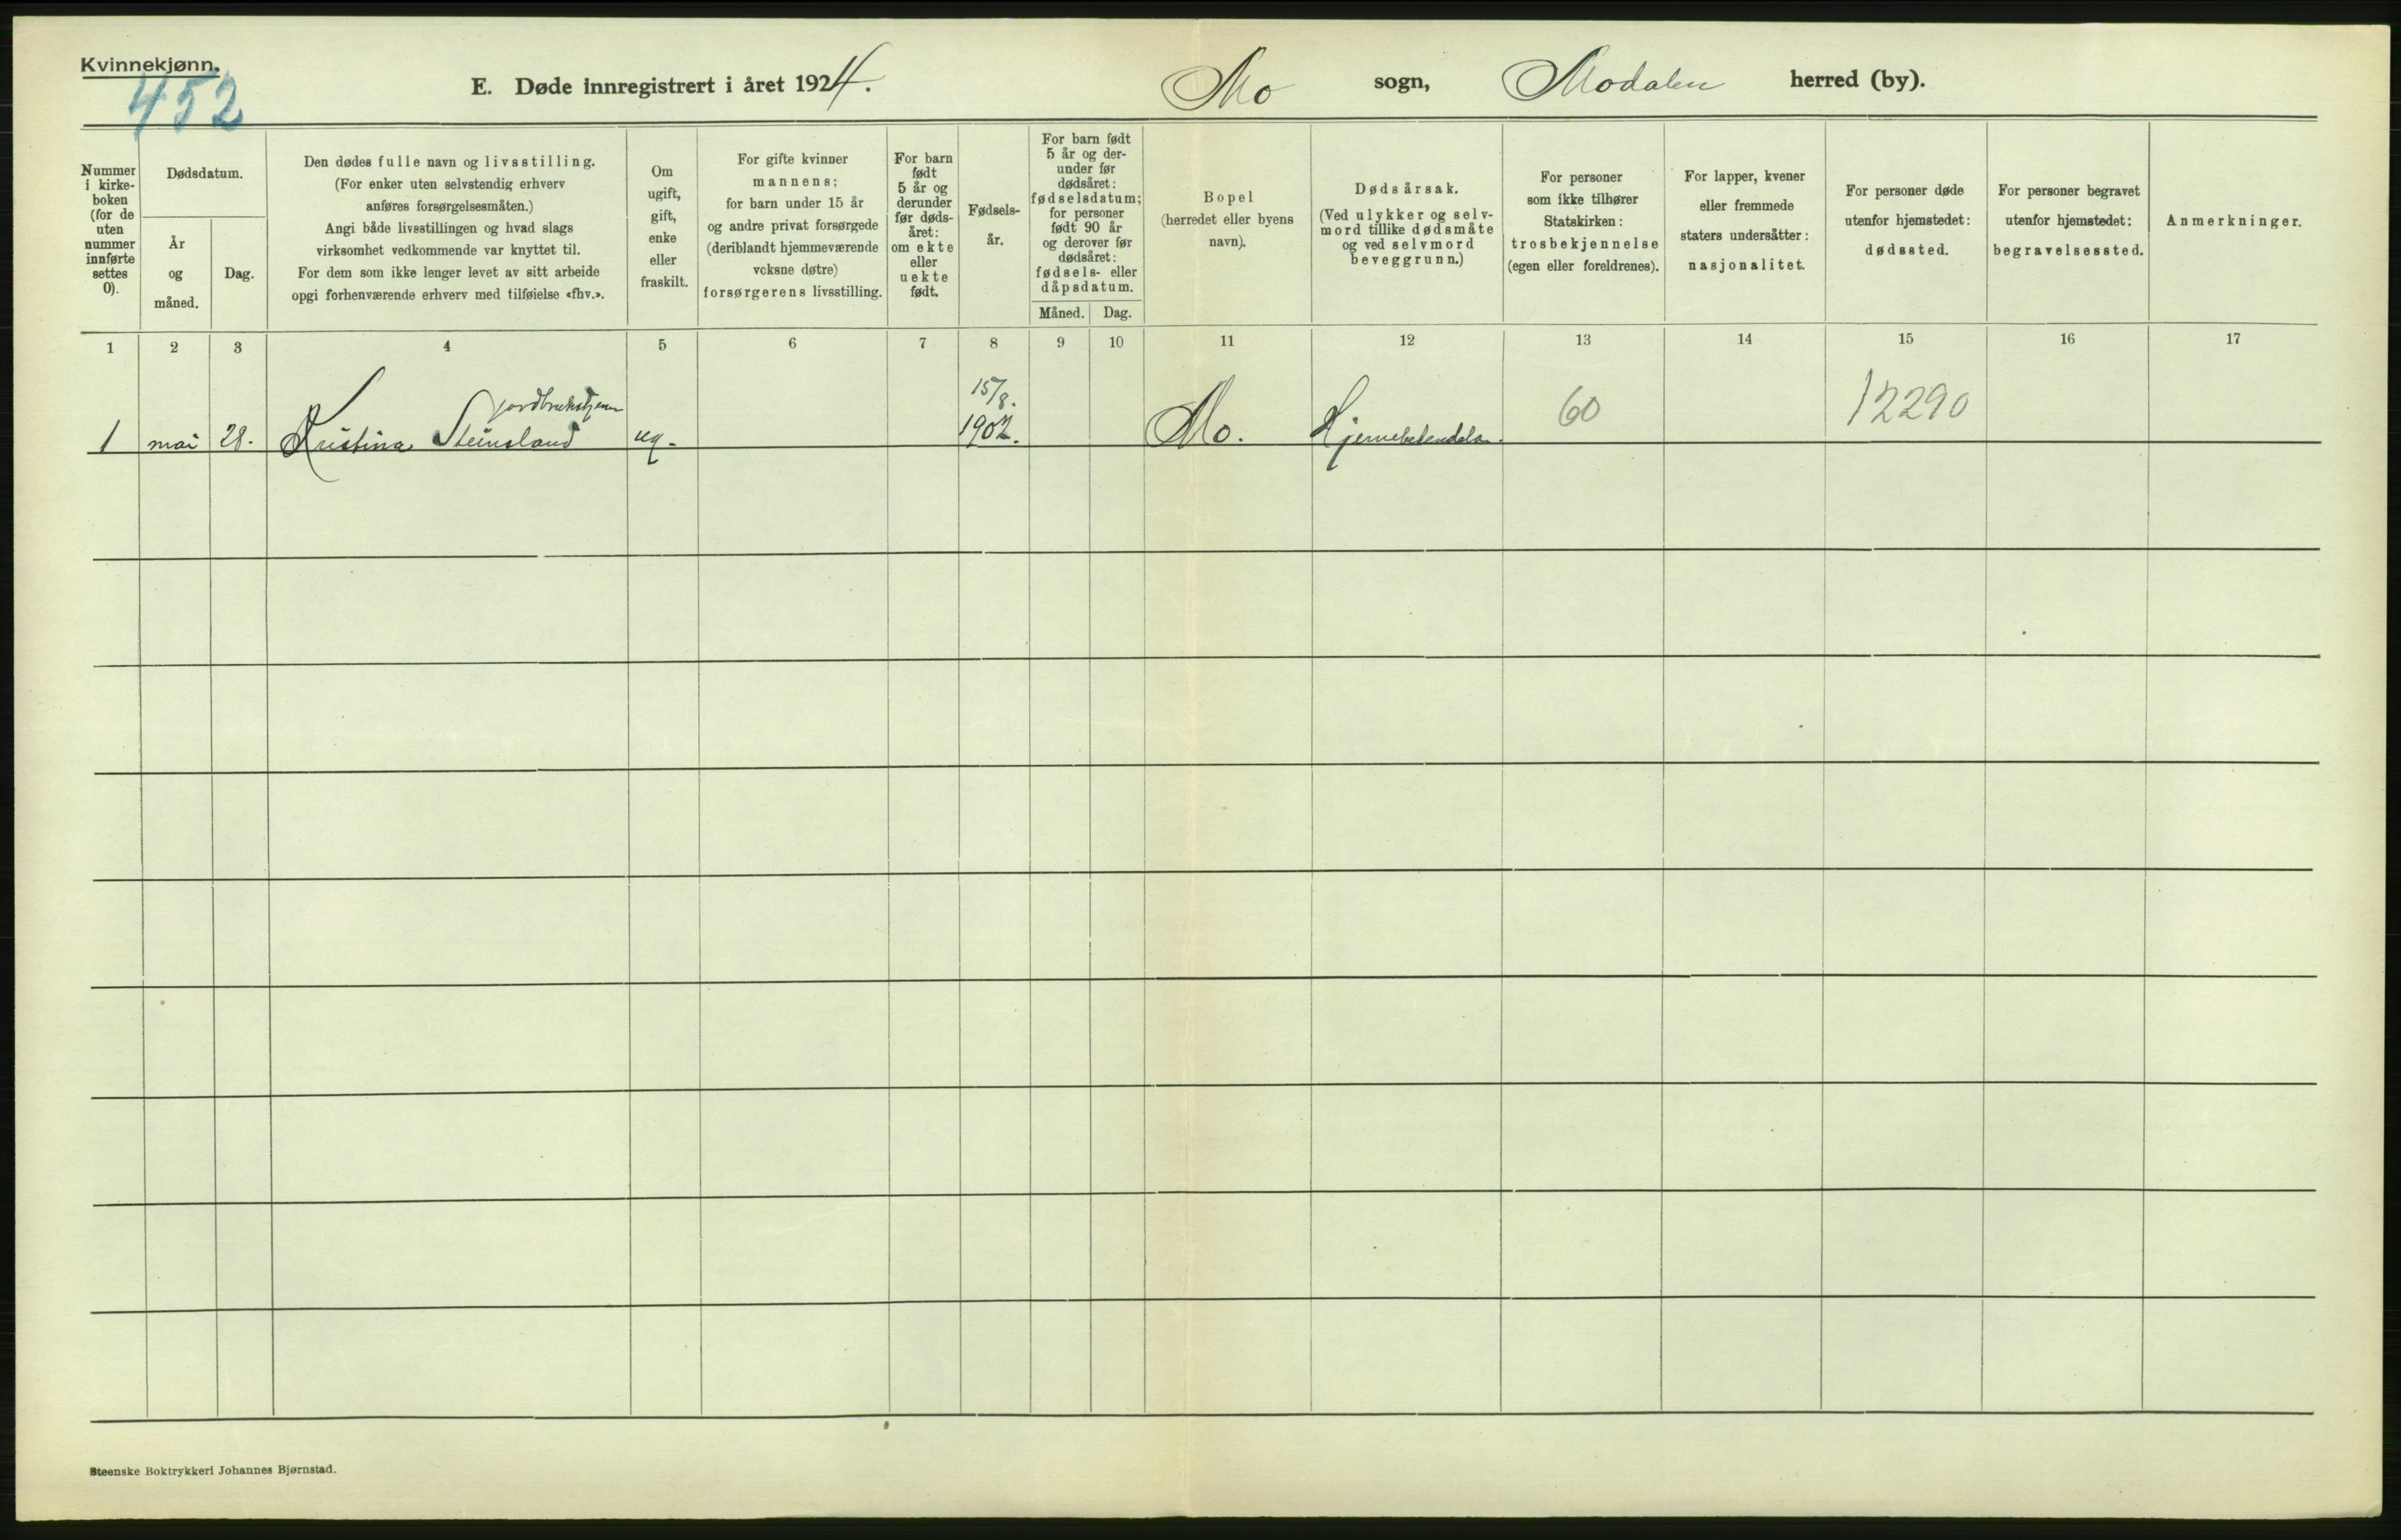 Kvinnekjønn.
452
E. Døde innregistrert i året 1924.
Mo sogn, Modalen herred (by).
Nummer
i kirke-
boken
(for de
uten
nummer
innførte
settes
0).
Dødsdatum.
År
og
måned.
Dag.
Den dødes fulle navn og livsstilling.
(For enker uten selvstendig erhverv
anføres forsørgelsesmåten.)
Angi både livsstillingen og hvad slags
virksomhet vedkommende var knyttet til.
For dem som ikke lenger levet av sitt arbeide
opgi forhenværende erhverv med tilføielse «fhv.».
Om
ugift,
gift,
enke
eller
fraskilt.
For gifte kvinner
mannens;
for barn under 15 år
og andre privat forsørgede
(deriblandt hjemmeværende
voksne døtre)
forsørgerens livsstilling.
For barn
født
5 år og
derunder
før døds-
året:
om ekte
eller
uekte
født.
Fødsels-
år.
For barn født
5 år og der-
under før
dødsåret:
fødselsdatum;
for personer
født 90 år
og derover før
dødsåret:
fødsels- eller
dåpsdatum.
Måned. Dag.
Bopel
(herredet eller byens
navn).
Dødsårsak.
(Ved ulykker og selv-
mord tillike dødsmåte
og ved selvmord
beveggrunn.)
For personer
som ikke tilhører
Statskirken:
trosbekjennelse
(egen eller foreldrenes).
For lapper, kvener
eller fremmede
staters undersåtter:
nasjonalitet.
For personer døde
utenfor hjemstedet:
dødssted.
For personer begravet
utenfor hjemstedet:
begravelsessted.
Anmerkninger.
1 2 3 4 5 6 7 8 9 10 11 12 13 14 15 16 17
15/8.
1 mai 28. Kristina Steinsland ug. 1902. Mo. Hjernebetendelse. 60 12290
Steenske Boktrykkeri Johannes Bjørnstad.